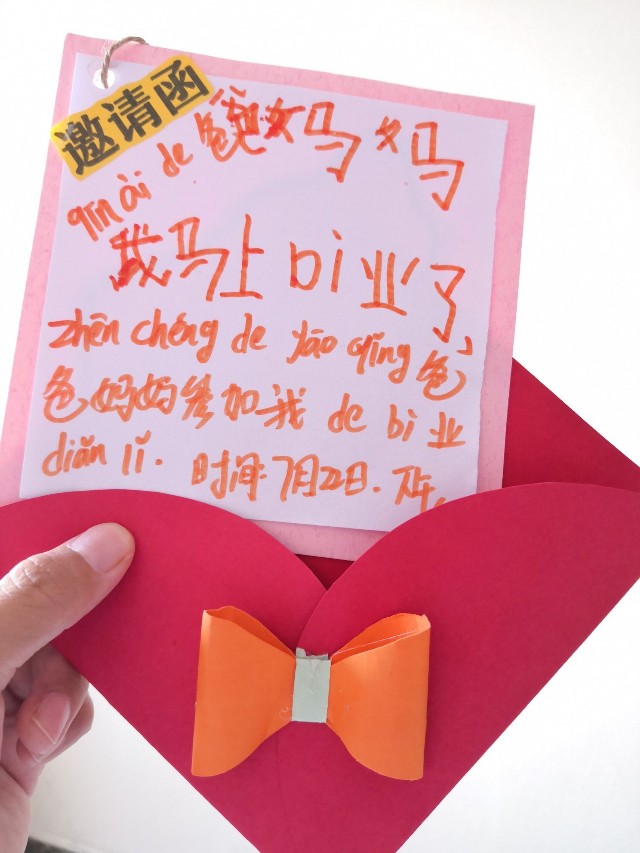 邀请函
qīn ài de 爸爸妈妈
我马上bì业了,
zhēn chéng de yāo qǐng爸
爸妈妈参加我 de bì 业
diǎn lǐ. 时间:7月22日. 下午.